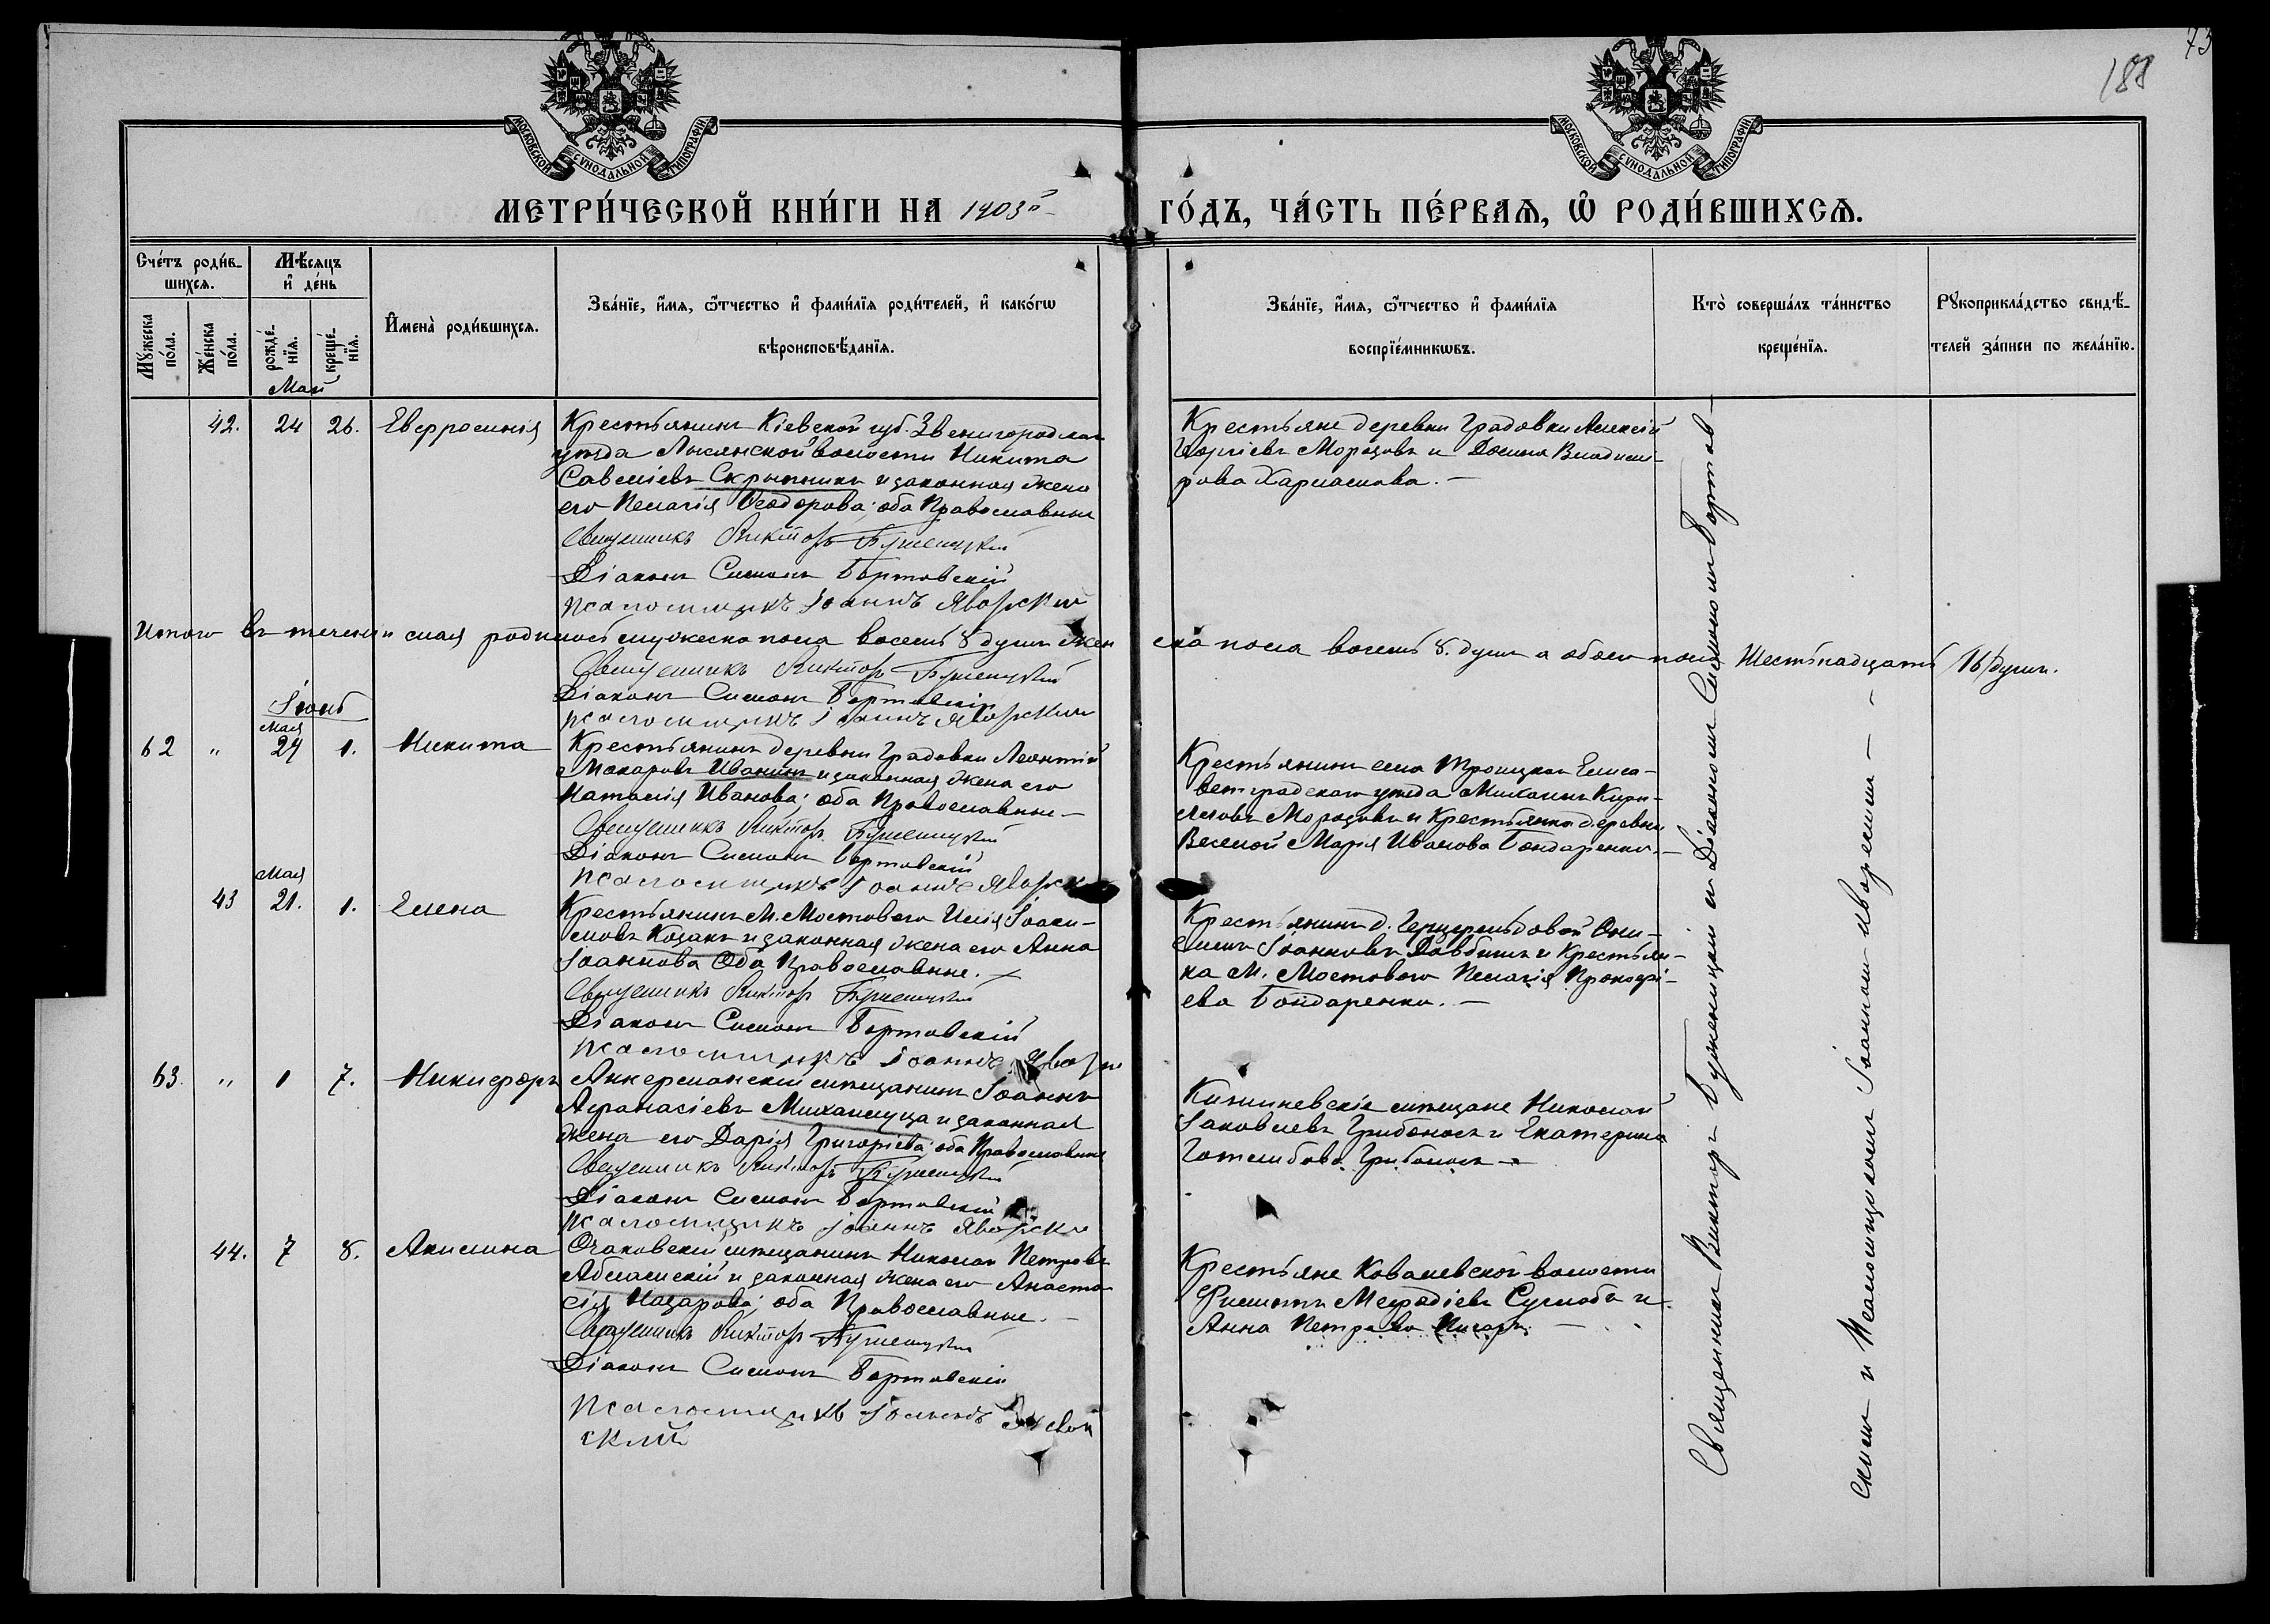 73
188
МОСКОВСКОЙ СѴНОДАЛЬНОЙ ТИПОГРАФІИ
МОСКОВСКОЙ СѴНОДАЛЬНОЙ ТИПОГРАФІИ
МЕТРИ́ЧЕСКОЙ КНИ́ГИ НА 1903й
ГО́ДЪ, ЧА́СТЬ ПЕ́РВАѦ, Ѡ҆ РОДИ́ВШИХСѦ.
Сче́тъ роди́в-
шихсѧ.
Мѣ́сѧцъ
и҆ де́нь
Мꙋ́жеска
по́ла.
Же́нска
по́ла.
рожде́-
нїѧ.
креще́-
нїѧ.
И҆мена̀ роди́вшихсѧ.
Зва́нїе, и҆́мѧ, ѻ҆́тчество и҆ фами́лїѧ роди́телей, и҆ како́гѡ
вѣроисповѣ́данїѧ.
Зва́нїе, и҆́мѧ, ѻ҆́тчество и҆ фами́лїѧ
воспрїе́мникѡвъ.
Кто̀ соверша́лъ та́инство
креще́нїѧ.
Рꙋкоприкла́дство свидѣ́-
телей за́писи по жела́нїю.
Май
42. 24 26. Евфросинія
Крестьянинъ Кіевской губ. Звенигородскаго
уѣзда Лысянской волости Никита
Савеліевъ Скрыпникъ и законная жена
его Пелагія Ѳеодорова; оба Православные
Священникъ Викторъ Буженицкій
Діаконъ Симонъ Бортовскій
Псаломщикъ Іоаннъ Яворскій
Крестьяне деревни Градовки Алексій
Георгіевъ Морозовъ и Домна Владими-
рова Харламова. —
Итого въ теченіи мая родилось мужеска пола восемь 8 душъ жен
ска пола восемь 8. душъ а обоего пола шестьнадцать /16/ душъ.
Священникъ Викторъ Буженицкій
Діаконъ Симонъ Бортовскій
Псаломщикъ Іоаннъ Яворскій
Іюнь
Мая
62 " 24 1. Никита
Крестьянинъ деревни Градовки Леонтій
Макаровъ Иванинъ и законная жена его
Наталія Иванова; оба Православные —
Священникъ Викторъ Буженицкій
Діаконъ Симонъ Бортовскій
Псаломщикъ Іоаннъ Яворск
Крестьянинъ села Троицкаго Елиса-
ветградскаго уѣзда Михаилъ Кири-
лловъ Морозовъ и Крестьянка деревни
Веселой Марія Иванова Бондаренко. —
Мая
43 21. 1. Елена
Крестьянинъ М. Мостового Илія Іоаки-
мовъ Козакъ и законная жена его Анна
Іоаннова Оба Православные. —
Священникъ Викторъ Буженицкій
Діаконъ Симонъ Бортовскій
Псаломщикъ Іоаннъ
Крестьянинъ д. Герцерельдовой Они-
симъ Іоанновъ Довбышъ и Крестьян-
ка М. Мостового Пелагія Прокофі-
ева Бондаренко. —
63. " 1 7. Никифоръ
Аккерманскій мѣщанинъ Іоаннъ
Афанасіевъ Михалицуца и законная
жена его Дарія Григоріева; оба Православные
Священникъ Викторъ Буженицкій
Діаконъ Симонъ Бортовскій
Псаломщикъ Іоаннъ Яворскій
Кишиневскіе мѣщане Николай
Іаковлевъ Грибоносъ и Екатерина
Готлибова Грибоносъ —
44. 7 8. Акилина
Очаковскій мѣщанинъ Николай Петровъ
Абламскій и законная жена его Анаста-
сія Назарова; оба Православные. —
Священникъ Викторъ Буженицкій
Діаконъ Симонъ Бортовскій
Псаломщикъ Іоаннъ
скій
Крестьяне Ковалевской волости
Филиппъ Мефодіевъ Суглоба и
Анна Петрова Писарь. —
Священникъ Викторъ Буженицкій съ Діакономъ Симономъ Бортов-
скимъ и Псаломщикомъ Іоанномъ Яворскимъ — —